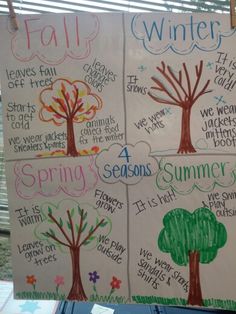 Fall
leaves fall
off trees
leaves
change
colors
Starts
to get
cold
we wear jackets
sneakers & pants
animals
collect food
for the winter
Winter
It
snows
It is
very
cold!
we wear
hats
we wear
jackets
mittens
boots
4
Seasons
Spring
It is
warm
Flowers
grow
Leaves
grow on
trees
we play
outside
Summer
It is hot!
we swim
play
outside
we wear shorts
sandals &
t-shirts